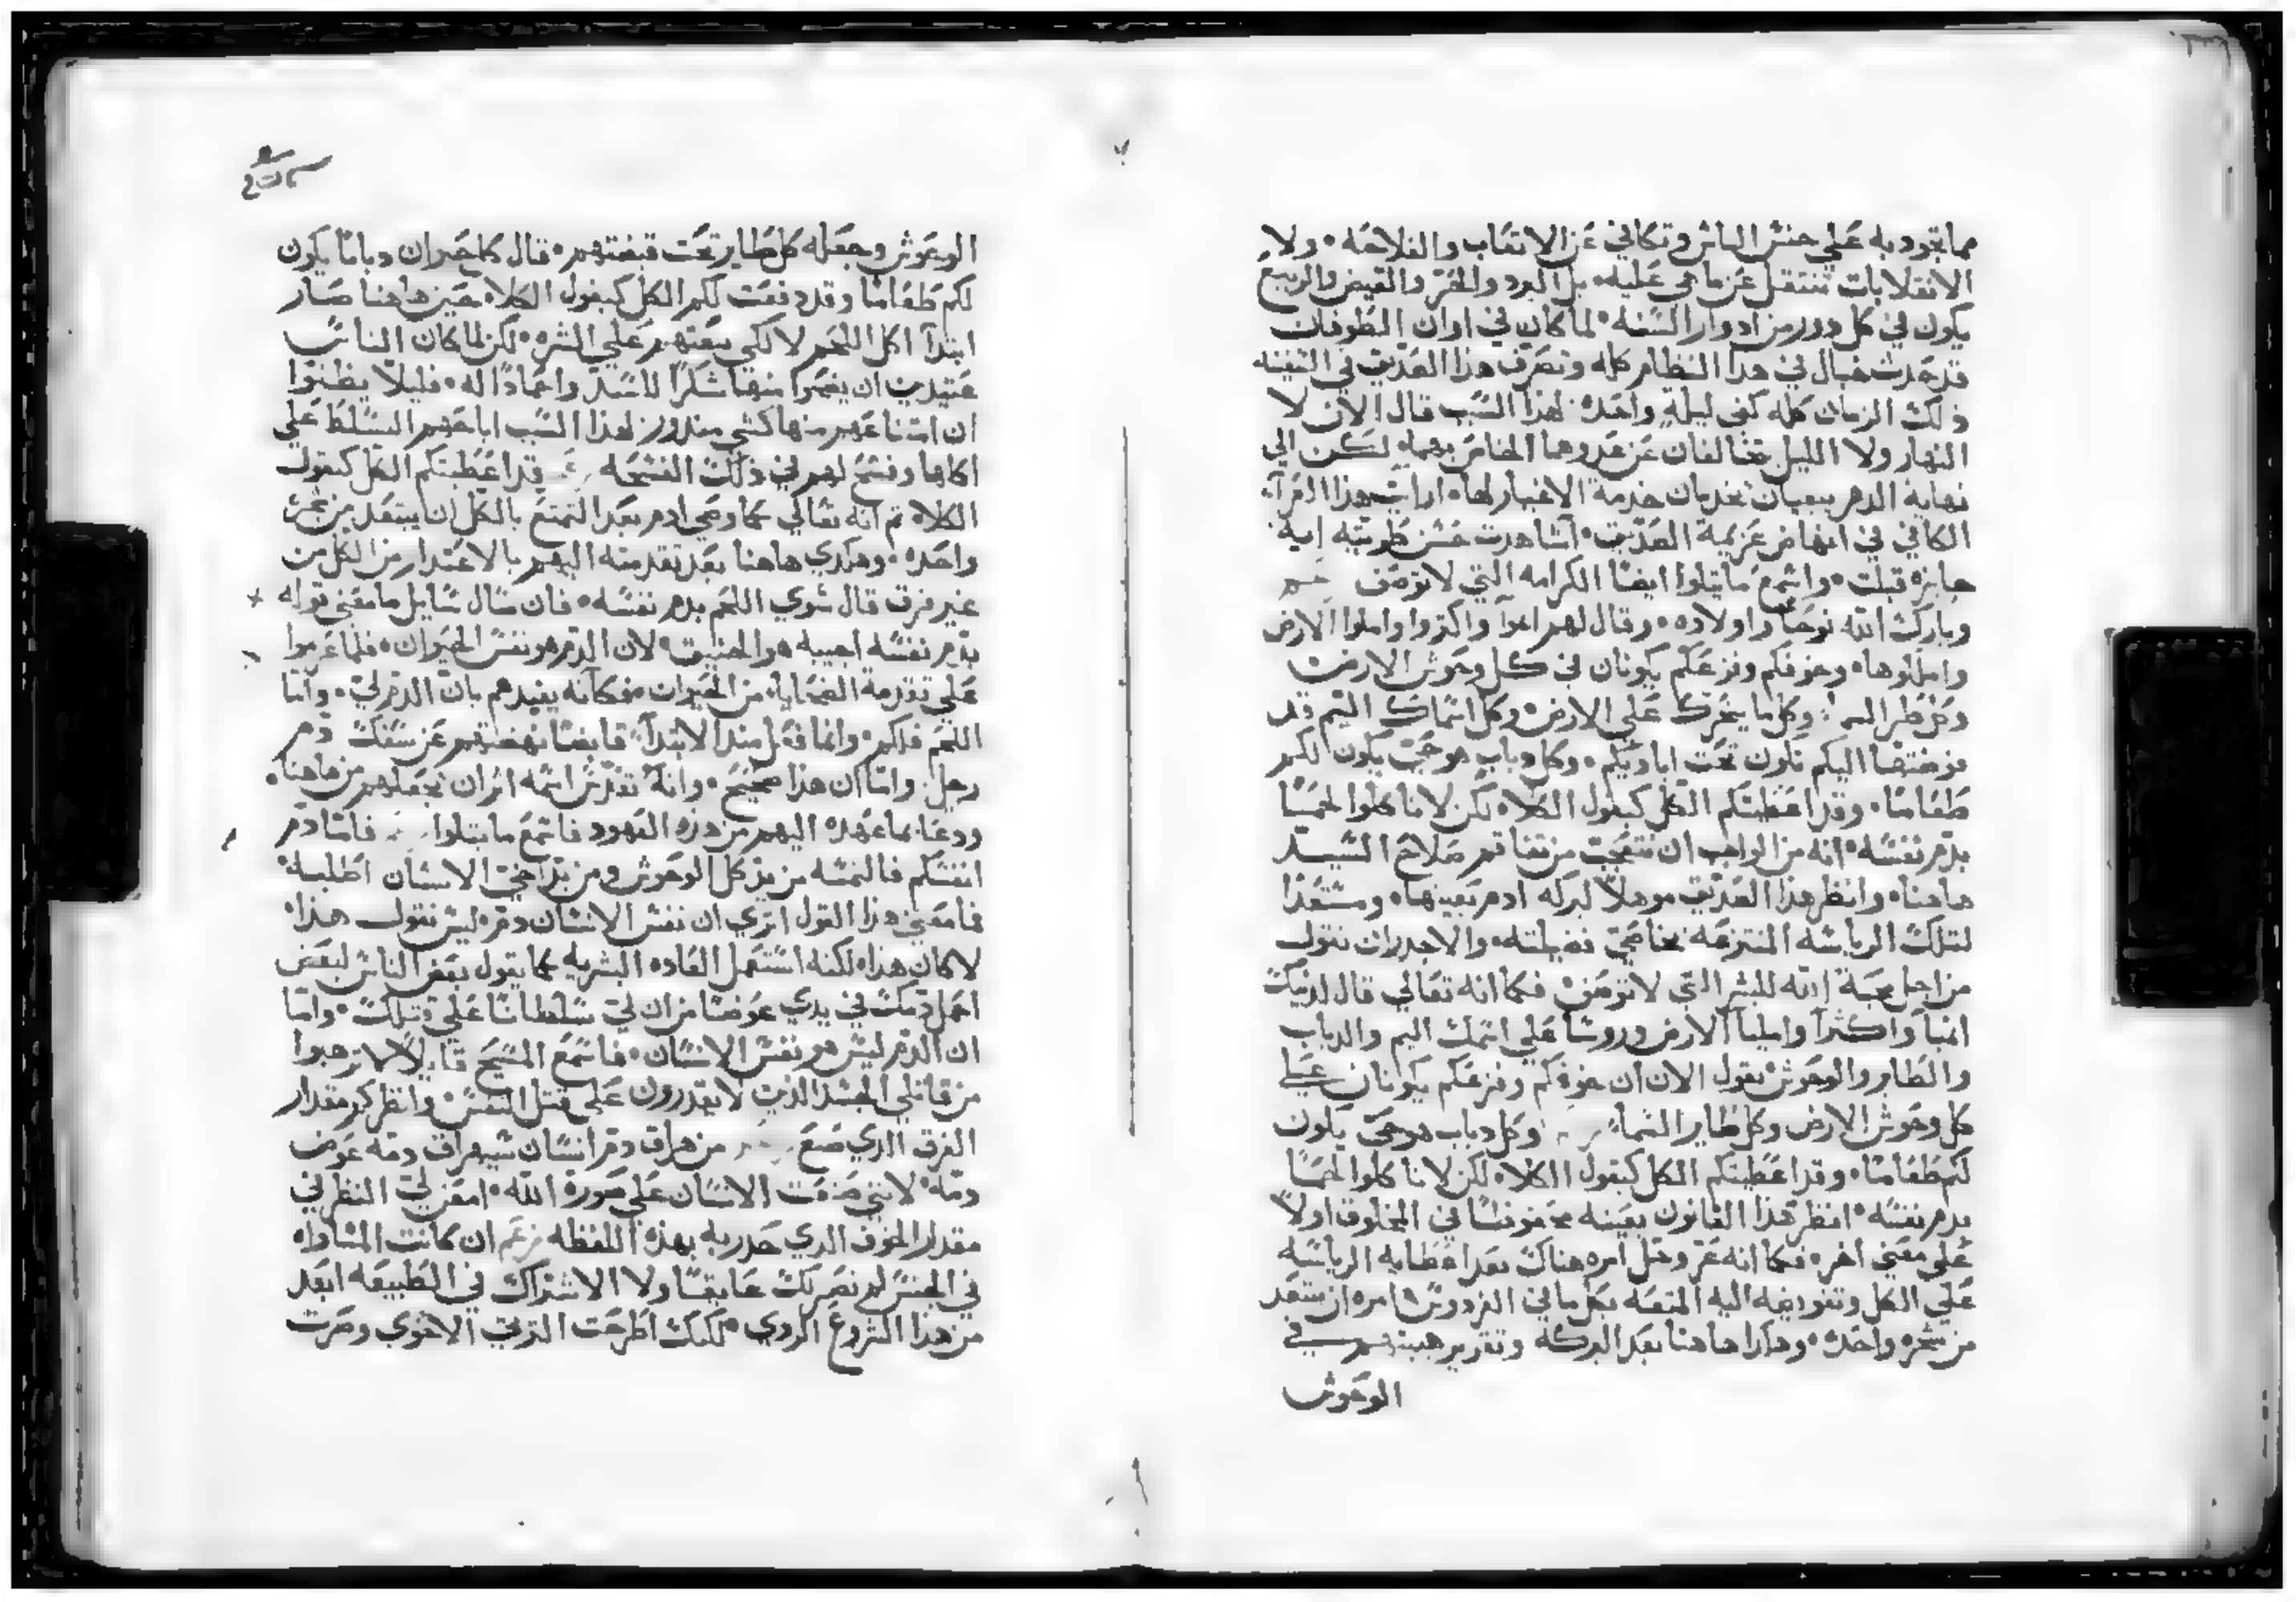 مما يجود به علي جنس الناس وتكافي عن الاتعاب والفلاحه ولا
الانقلابات تنتقل عن ما هي عليه بل البرد والحر والقيض والربيع
يكون في كل دور من ادوار السنه لما كان في اوان الطوفان
قد حدث خبال في هدا النظام كله وتصرف هذا الصديق في السفينه
ذلك الزمان كله كفي ليلة واحده لهذا السبب قال الان لا
النهار ولا الليل يتخالفان عن الي
نهاية الدهر خدمة ارايت هذا
الكافي في انهاض عزيمة الصديق اشاهدت حسن طويته اية
جايزه قبلت واسمع ما يتلوا ايضا الكرامه التي لا توصف
وبارك الله نوحا واولاده وقال لهم انموا واكتروا واملوا الارض
واملكوها وخوفكم وفزعكم يكونان في كل وحوش الارض
وكل وكل ما يتحرك علي الارض وكل اسماك اليم قد
فوضتها اليكم تكون تحت اياديكم وكل دباب هو حي يكون لكم
طعاما وقد اعطيتكم الكل كبقول الكلاه لكن لا تاكلوا لحما
بدم نفسه انه من الواجب ان نتعجب من تفاقم صلاح السيد
هاهنا وانظر هذا الصديق موهلا لبركه ادم بعينها ومستعدا
لتلك الرياسه المنتزعه بخاصي فضيلته والاجدر ان نقول
من اجل محبة الله للبشر التي لا توصف فكما انه تعالي قال لدينك
انميا واكثرا وامليا الارض وروسا علي اسمك اليم والدباب
والطاير والوحوش يقول الان ان خوفكم وفزعكم يكونان علي
كل وحوش الارض وكل طاير السما وكل دباب هو حي يكون
لكم طعاما وقد اعطيتكم الكل كبقول الكلاه لكن لا تاكلوا لحما
بدم نفسه انظر هدا القانون بعينه محفوضا في المخلوق اولا
علي معني اخر فكما انه عز وجل امره هناك بعد اعطايه الرياسه
علي الكل وتفويضه اليه المتعه بكل ما في الفردوس امره ان يبتعد
من شجره واحده وهكدا هاهنا بعد البركه وتقرير هيبتهم في
الوحوش
الوحوش وجعله كل طاير تحت قبضتهم قال كل حيوان دبابا يكون
لكم طعاما وقد دفعت لكم الكل كبقول الكلاه من هاهنا صار
ابتدآ اكل اللحم لا لكي يبعتهم علي الشره لكن لما كان الناس
عتيدين ان يضحوا منها شكرا للسيد له فليلا يظنوا
ان امتناعهم منها كشي مندور لهذا السبب اباحهم التسلط علي
اكلها وفسح لهم في ذلك الفسحه قد اعطيتكم الكل كبقول
الكلاه تم انه تعالي كما وصي ادم بعد التمتع بالكل ان يبتعد من شجره
واحده وهكدي هاهنا بعد تقدمته اليهم بالاغتدا من الكل من
غير فرق قال سوي اللحم بدم نفسه فان سال سايل ما معني قوله
بدم نفسه اجيبه هو الخنيق لان الدم هو نفس الحيوان فلما عزموا
علي تقدمة الضحايا من الحيوان فكانه يفيدهم بان الدم لي واما
اللحم فلكم وانما فعل منذ الابتدآ قابضا نهضتهم عن سفك دم
رجل واما ان هذا صحيح وانه تقدس اسمه اثر ان يجعلهم من هاهنا
ودعا بما عهده اليهم من هذه العهود فاسمع ما يتلوا فاما دم
انفسكم فالتمسه من يد كل الوحوش ومن يد اخي الانسان اطلبه
فما معني هذا القول اتري ان نفس الانسان دم ليس نقول هذا
لا كان هذا لكنه استعمل العاده البشريه كما يقول بعض الناس لبعض
احمل دمك في يدي عوضا من ان لي سلطانا علي قتلك واما
ان الدم ليس هو نفس الانسان فاسمع المسيح قايلا لا ترهبوا
من قاتلي الجسد الذين لا يقدرون علي قتل النفس وانظر كم مقدار
الفرق الدي صنع من هراق دم انسان سيهراق دمه عوض
دمه لانني صنعت الانسان علي صورة الله امعن لي النظر في
مقدار الخوف الدي حدر به بهذه اللفظه زعم ان كانت المساواه
في الجنس لم تصر لك عايقا ولا الاشتراك في الطبيعه ابعد
من هدا النزوع الردي لكنك اطرحت التربي الاخوي وصرت